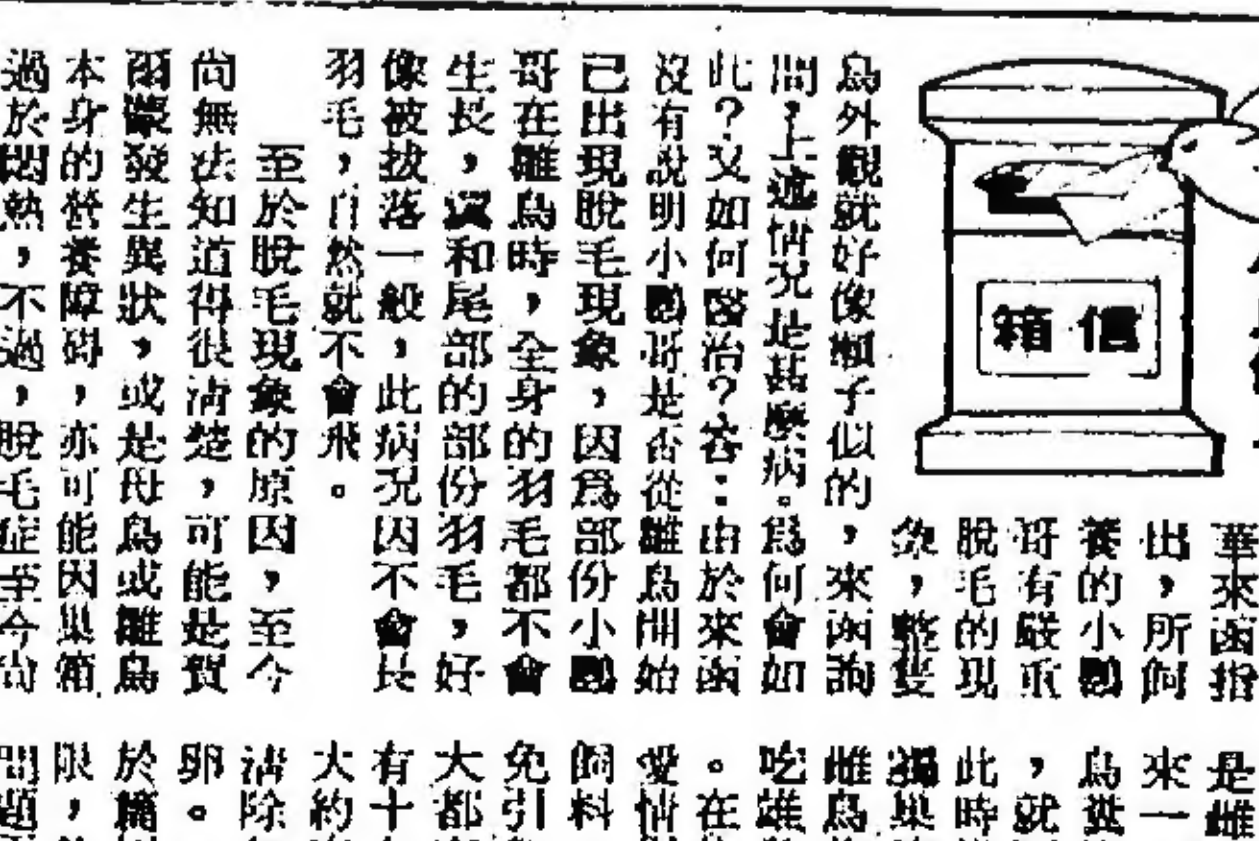 信箱
華來函指
出,所飼
養的小鸚
哥有嚴重
脫毛的現
象,整隻
鳥外觀就好像癩子似的,來函詢
問,上述情況是甚麼病。爲何會如
此?又如何醫治?答:由於來函
沒有說明小鸚哥是否從雛鳥開始
已出現脫毛現象,因爲部份小鸚
哥在雛鳥時,全身的羽毛都不會
生長,翼和尾部的部份羽毛,好
像被拔落一般,此病況因不會長
羽毛,自然就不會飛。
至於脫毛現象的原因,至今
尚無法知道得很清楚,可能是賀
爾蒙發生異狀,或是母鳥或雛鳥
本身的營養障碍,亦可能因巢箱
過於悶熱,不過,脫毛症至今尚
是雌
來一
鳥糞
,就
此時
獨巢
雌鳥
吃雄
。在
愛情
飼料
免引
大都
有十
大約
清除
卵。
於篇
限,
問題